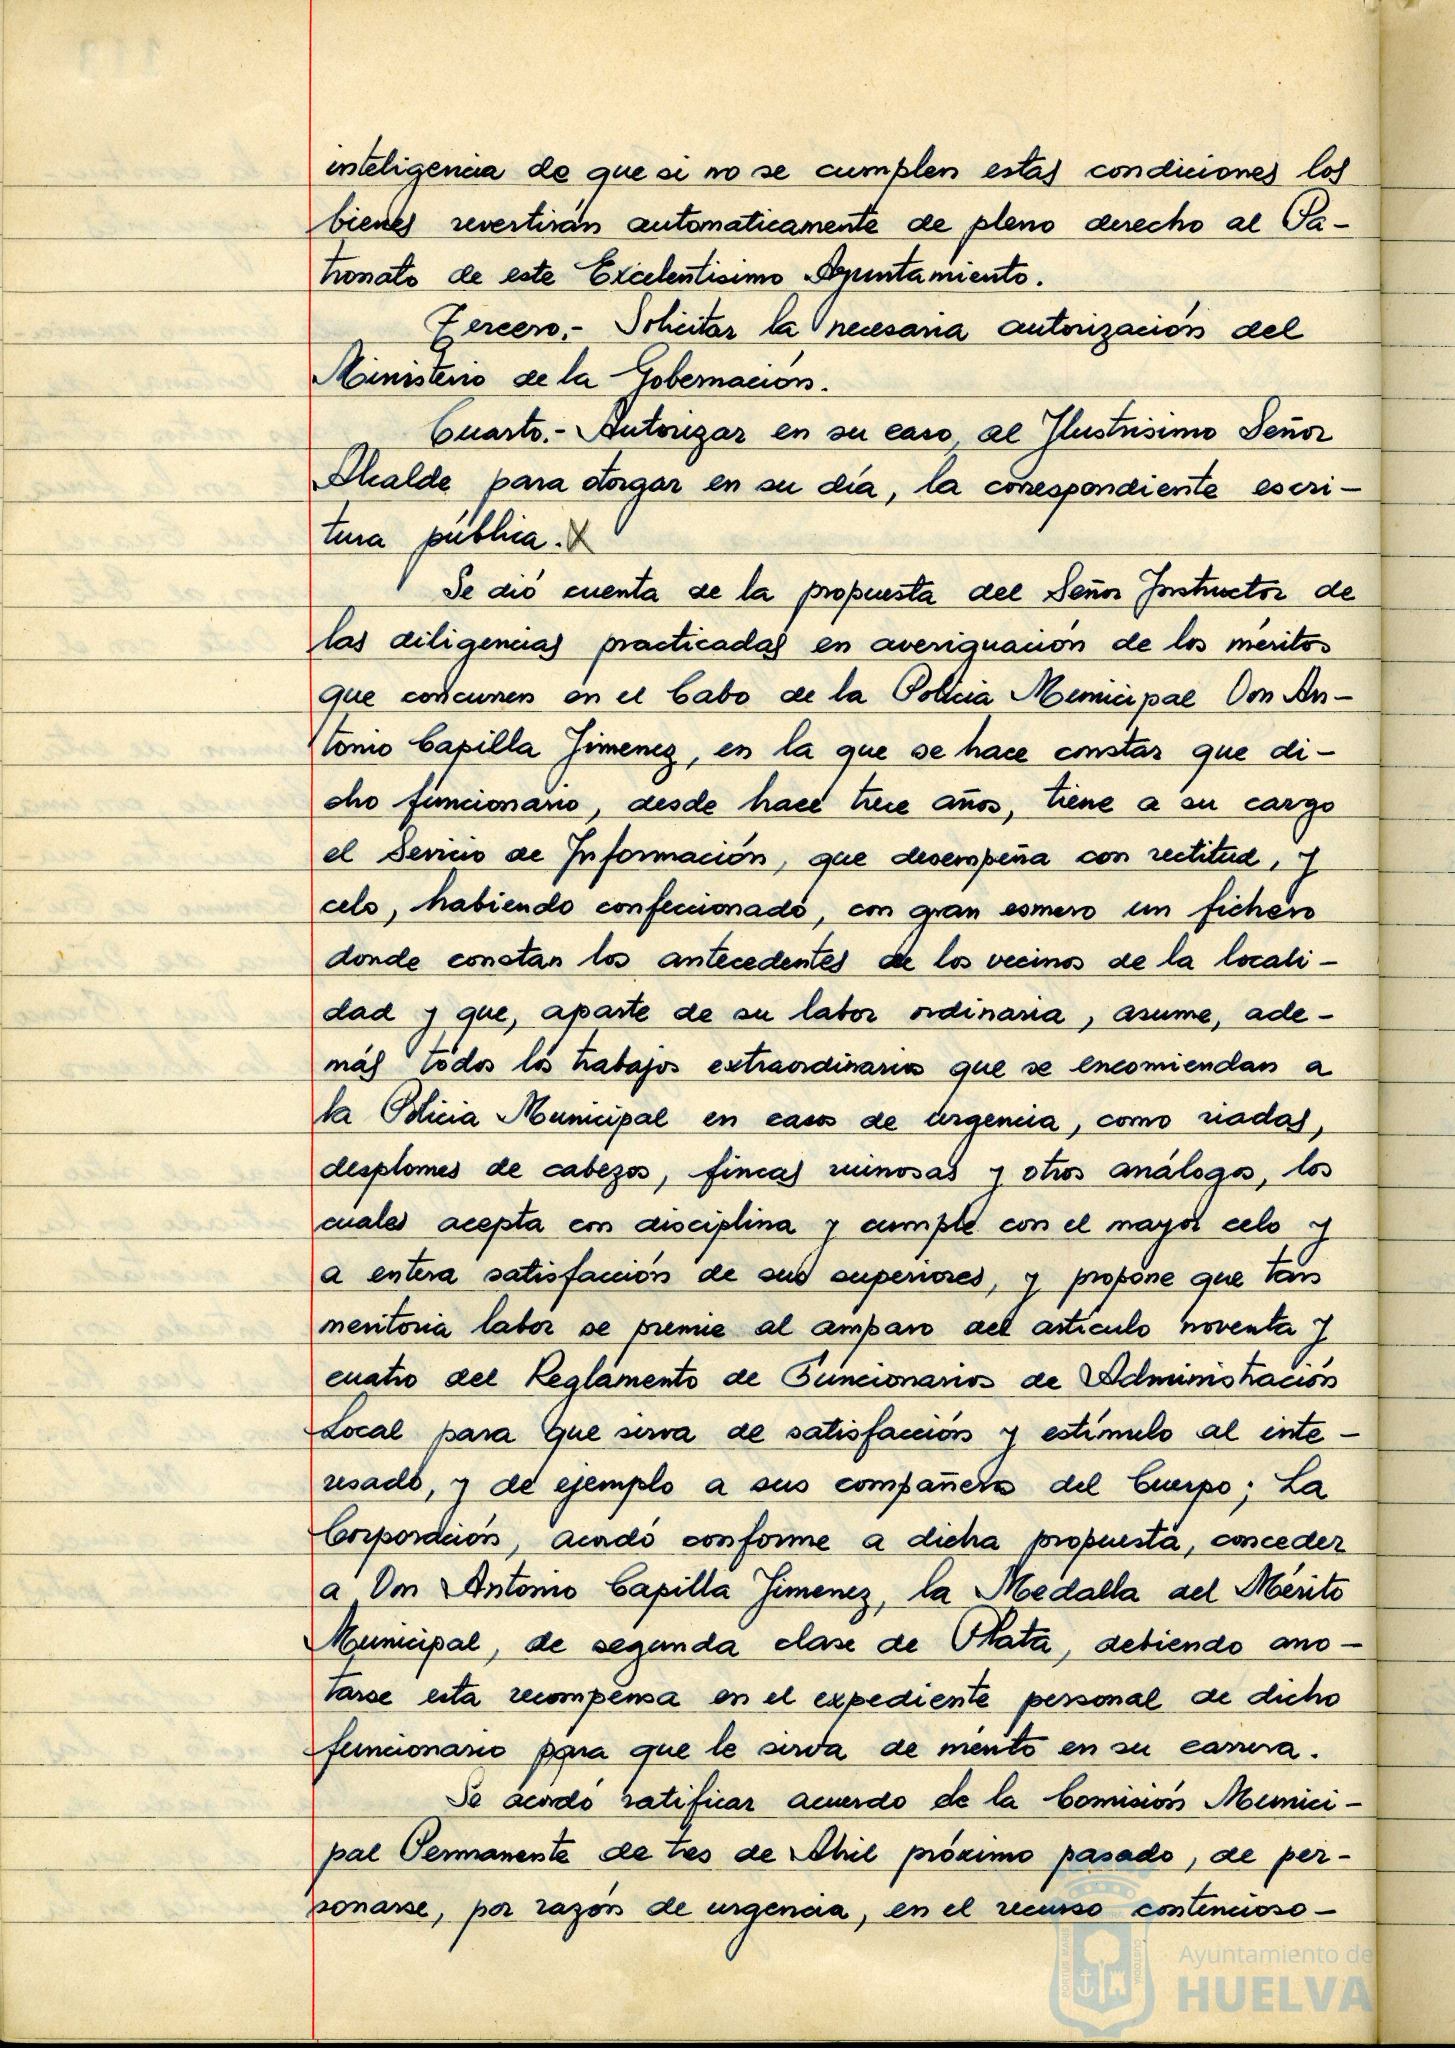 inteligencia de que si no se cumplen estas condiciones los
bienes revertirán automaticamente de pleno derecho al Pa-
tronato de este Excelentisimo Ayuntamiento.
Tercero.- Solicitar la necesaria autorización del
Ministerio de la Gobernación.
Cuarto.- Autorizar en su caso, al Ilustrisimo Señor
Alcalde para otorgar en su día, la correspondiente escri-
tura pública. X
Se dió cuenta de la propuesta del Señor Instructor de
las diligencias practicadas en averiguación de los méritos
que concurren en el Cabo de la Policia Municipal Don An-
tonio Capilla Jimenez, en la que se hace constar que di-
cho funcionario, desde hace trece años, tiene a su cargo
el Servicio de Información, que desempeña con rectitud, y
celo, habiendo confeccionado, con gran esmero un fichero
donde constan los antecedentes de los vecinos de la locali-
dad y que, aparte de su labor ordinaria, asume, ade-
más todos los trabajos extraordinarios que se encomiendan a
la Policia Municipal en casos de urgencia, como riadas,
desplomes de cabezos, fincas ruinosas y otros análogos, los
cuales acepta con disciplina y cumple con el mayor celo y
a entera satisfacción de sus superiores, y propone que tan
meritoria labor se premie al amparo del artículo noventa y
cuatro del Reglamento de Funcionarios de Administración
Local para que sirva de satisfacción y estímulo al inte-
resado, y de ejemplo a sus compañeros del Cuerpo; La
Corporación, acordó conforme a dicha propuesta, conceder
a Don Antonio Capilla Jimenez, la Medalla del Mérito
Municipal, de segunda clase de Plata, debiendo ano-
tarse esta recompensa en el expediente personal de dicho
funcionario para que le sirva de mérito en su carrera.
Se acordó ratificar acuerdo de la Comisión Munici-
pal Permanente de tres de Abril próximo pasado, de per-
sonarse, por razón de urgencia, en el recurso contencioso-
Ayuntamiento de
HUELVA